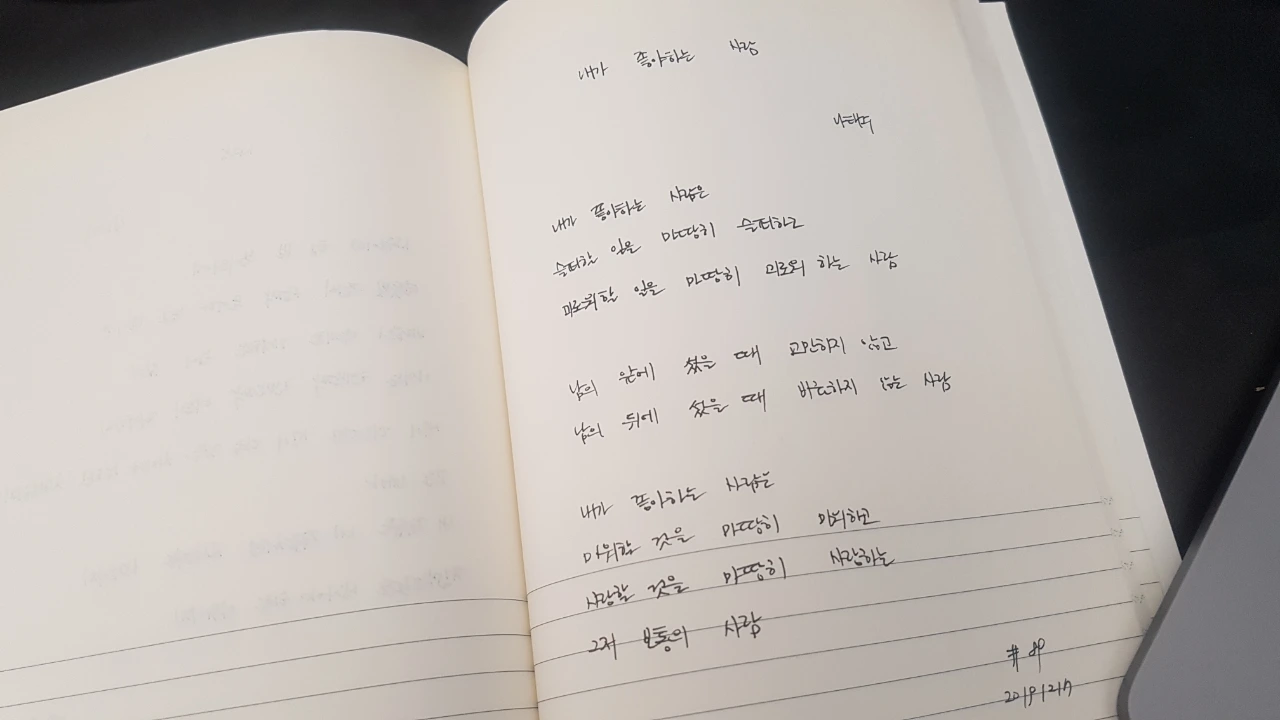 내가 좋아하는 사람
나태주
내가 좋아하는 사람은
슬퍼할 일을 마땅히 슬퍼하고
괴로워할 일을 마땅히 괴로워 하는 사람
남의 앞에 섰을 때 교만하지 않고
남의 뒤에 섰을 때 비굴하지 않는 사람
내가 좋아하는 사람은
미워할 것을 마땅히 미워하고
사랑할 것을 마땅히 사랑하는
그저 보통의 사람
# 89
20191217